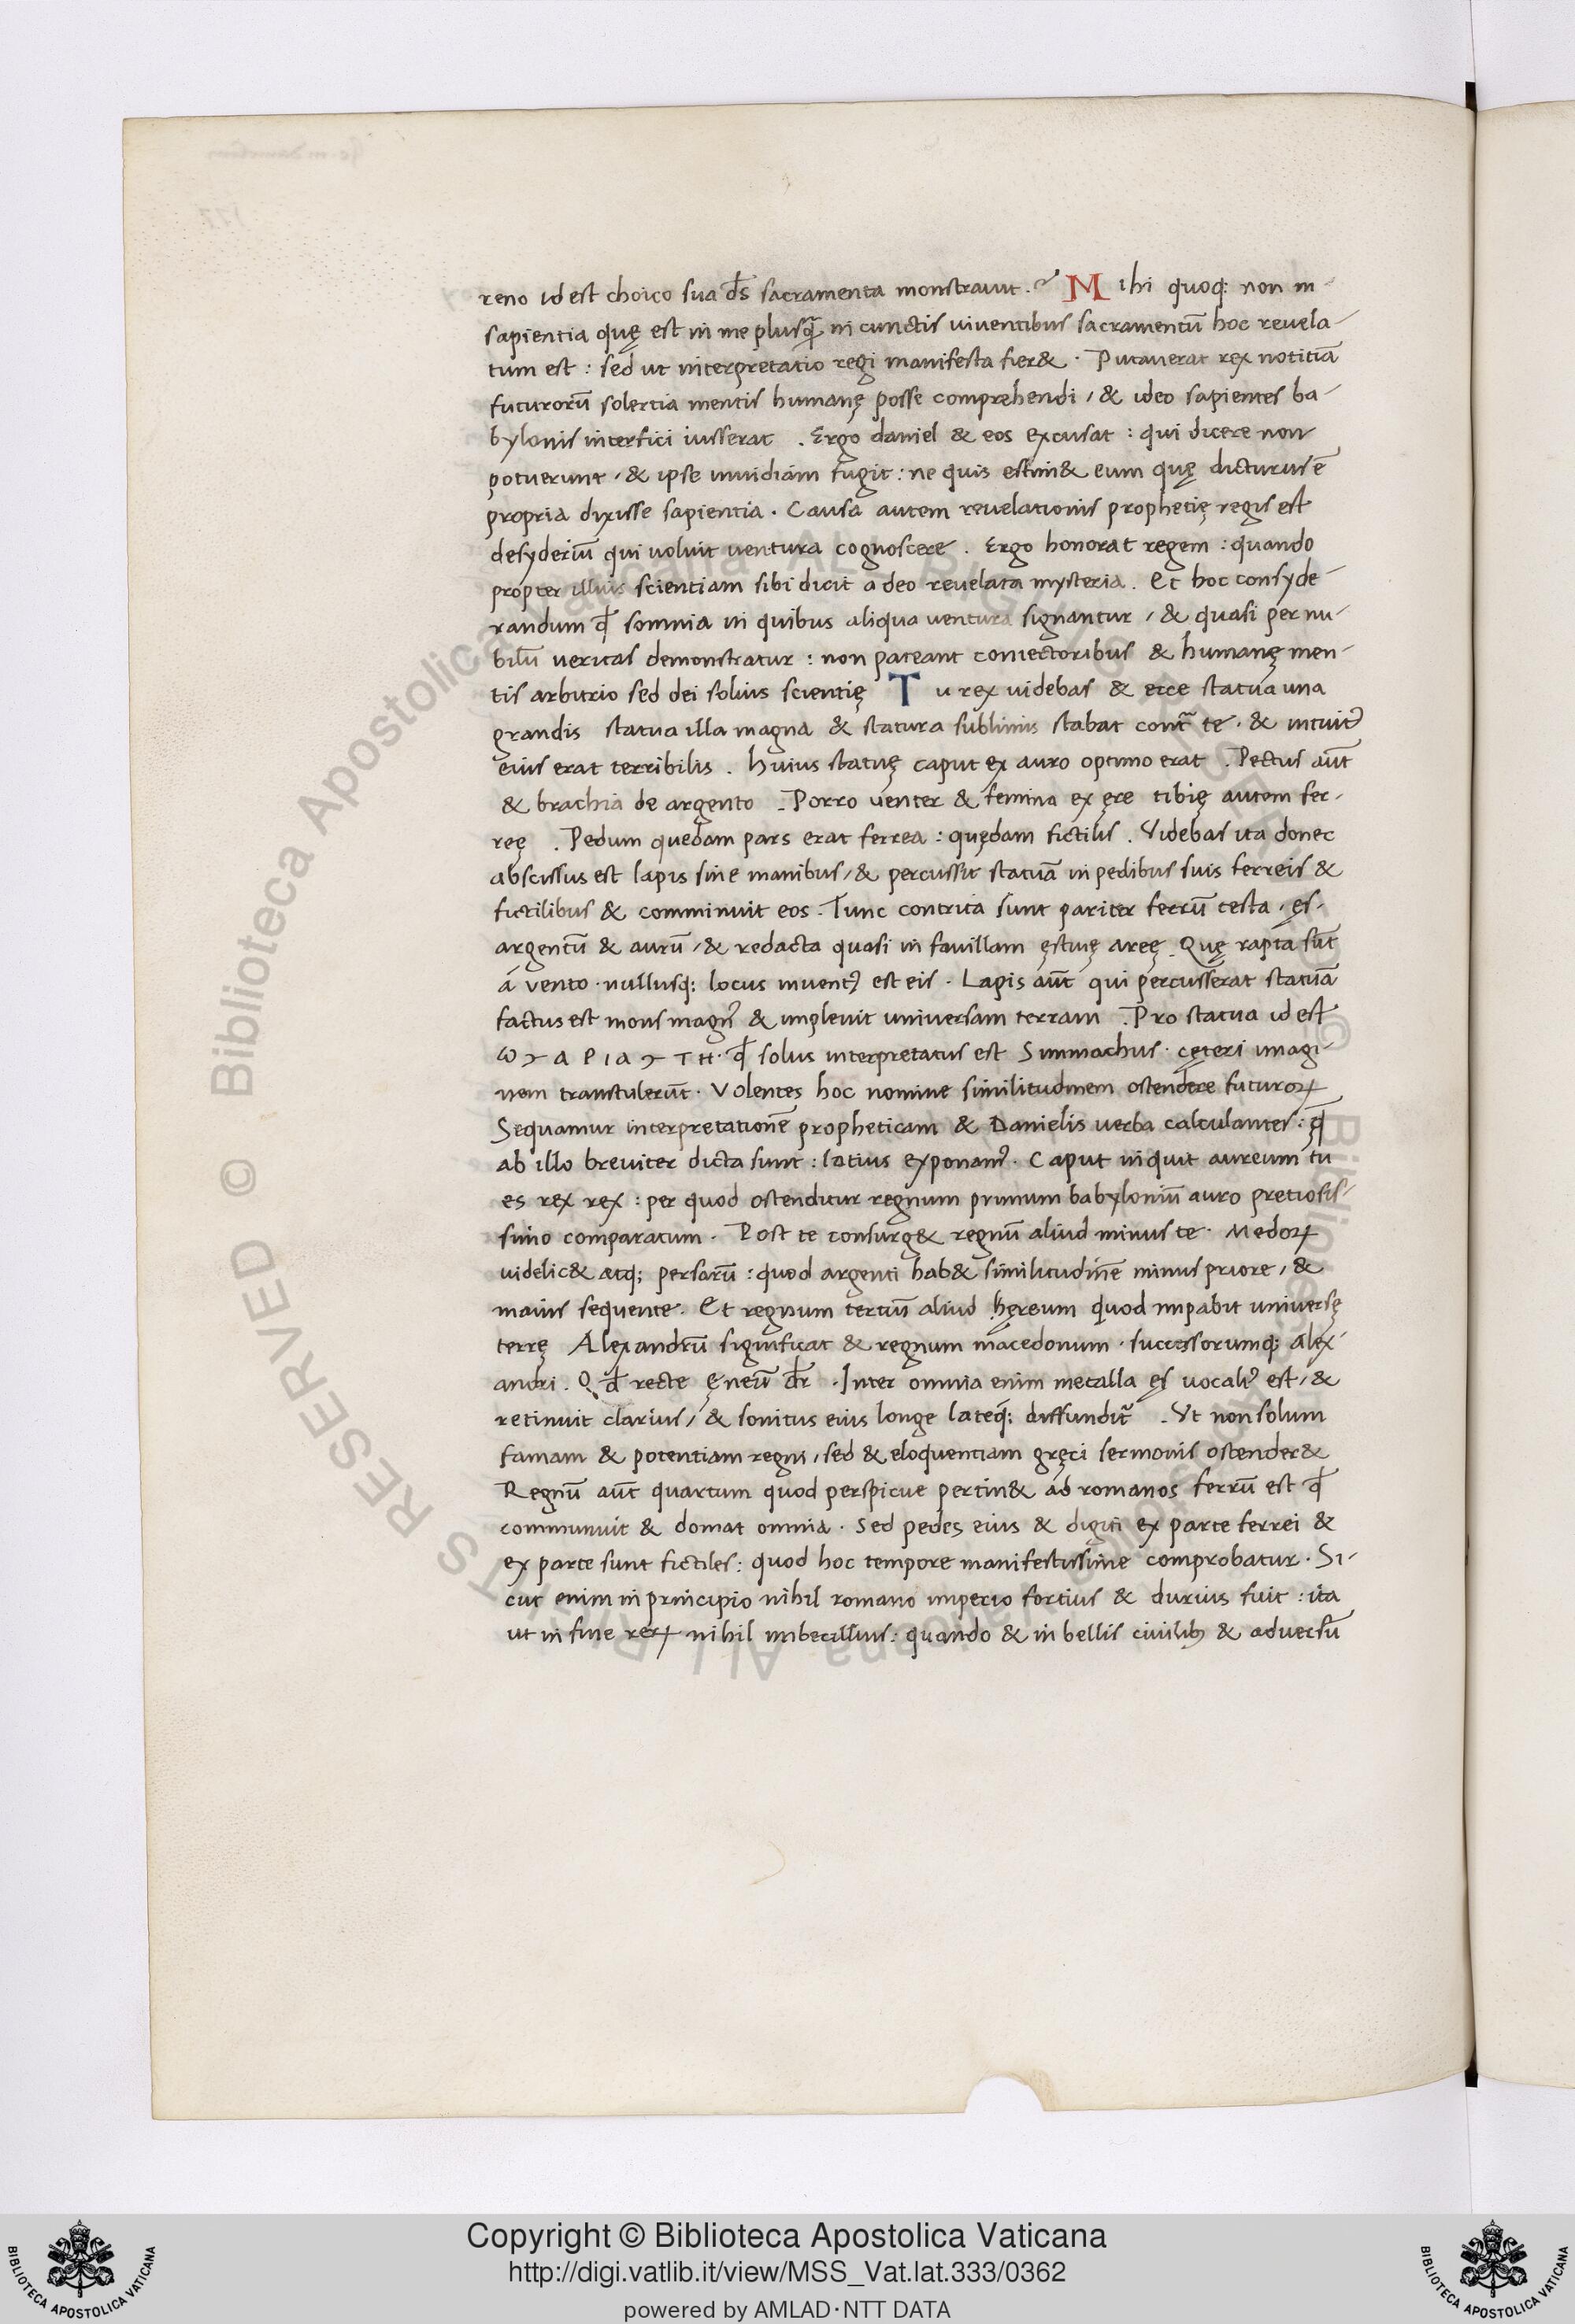 reno id est choico sua d̄s sacramenta monstrauit. Mihi quoq; non in
sapientia quę est in me plusq̄ in cunctis viventibus sacramentū hoc revela-
tum est : sed ut interpretatio regi manifesta fier& . Putauerat rex notitiā
futurorū solertia mentis humanę posse comprehendi , & ideo sapientes ba-
bylonis interfici iusserat . Ergo daniel & eos excusat : qui dicere non
potuerunt , & ipse inuidiam fugit : ne quis estim& eum quę dicturus ē
propria dixisse sapientia . Causa autem reuelationis prophetię regis est
desyderiū qui uoluit ventura cognoscere . Ergo honorat regem : quando
propter illius scientiam sibi dicit a deo reuelata mysteria . Et hoc consyde-
randum q̄ somnia in quibus aliqua ventura signantur , & quasi per nu-
bilū veritas demonstratur : non pateant coniectoribus & humanę men-
tis arbitrio sed dei solius scientię Tu rex uidebas & ecce statua una
grandis statua illa magna & statura sublimis stabat cont̄ te . & intuit᾿
eius erat terribilis . huius statuę caput ex auro optimo erat . Pectus aūt
& brachia de argento . Porro venter & femina ex ęre tibię autem fer-
reę . Pedum quedam pars erat ferrea : quędam fictilis . Videbas ita donec
abscissus est lapis sine manibus , & percussit statuā in pedibus suis ferreis &
fictilibus & comminuit eos . Tunc contrita sunt pariter ferrū testa , ęs .
argentū & aurū , & redacta quasi in fauillam ęstiuę areę . Quę rapta sūt
á vento . nullusq; locus inuent᾿ est eis . Lapis aūt qui percusserat statuā
factus est mons magn᾿ & impleuit universam terram . Pro statua id est
ω ϒ Α Ρ Ι Α ϒ Τ Η . q̄ solus interpretatus est Simmachus . cęteri imagi-
nem transtulerūt . Volentes hoc nomine similitudinem ostendere futuroꝝ
Sequamur interpretationē propheticam & Danielis uerba calculantes : q̄
ab illo breuiter dicta sunt : latius exponam᾿ . Caput inquit aureum tu
es rex rex : per quod ostenditur regnum primum babyloniū auro pretiosis-
simo comparatum . Post te consurg& regnū aliud minus te . Medoꝝ
uidelic& atq; persarū : quod argenti hab& similitudinē minus priore , &
maius sequente . Et regnum tertiū aliud hęreum quod impabit universę
terrę Alexandrū significat & regnum macedonum . successorumq; alex-
andri . Qd̄ recte ęneū dr̄ . Inter omnia enim metalla ęs uocali᾿ est , &
retinuit clarius , & sonitus eius longe lateq; diffundit᾿ . Vt non solum
famam & potentiam regni , sed & eloquentiam gręci sermonis ostender&
Regnū aūt quartum quod perspicue pertin& ad romanos ferrū est q̄
comminuit & domat omnia . Sed pedes eius & digiti ex parte ferrei &
ex parte sunt fictiles : quod hoc tempore manifestissime comprobatur . Si-
cut enim in principio nihil romano imperio fortius & durius fuit : ita
ut in fine reꝝ nihil imbecillius : quando & in bellis ciuilib; & aduersū
Copyright © Biblioteca Apostolica Vaticana
http://digi.vatlib.it/view/MSS_Vat.lat.333/0362
powered by AMLAD·NTT DATA